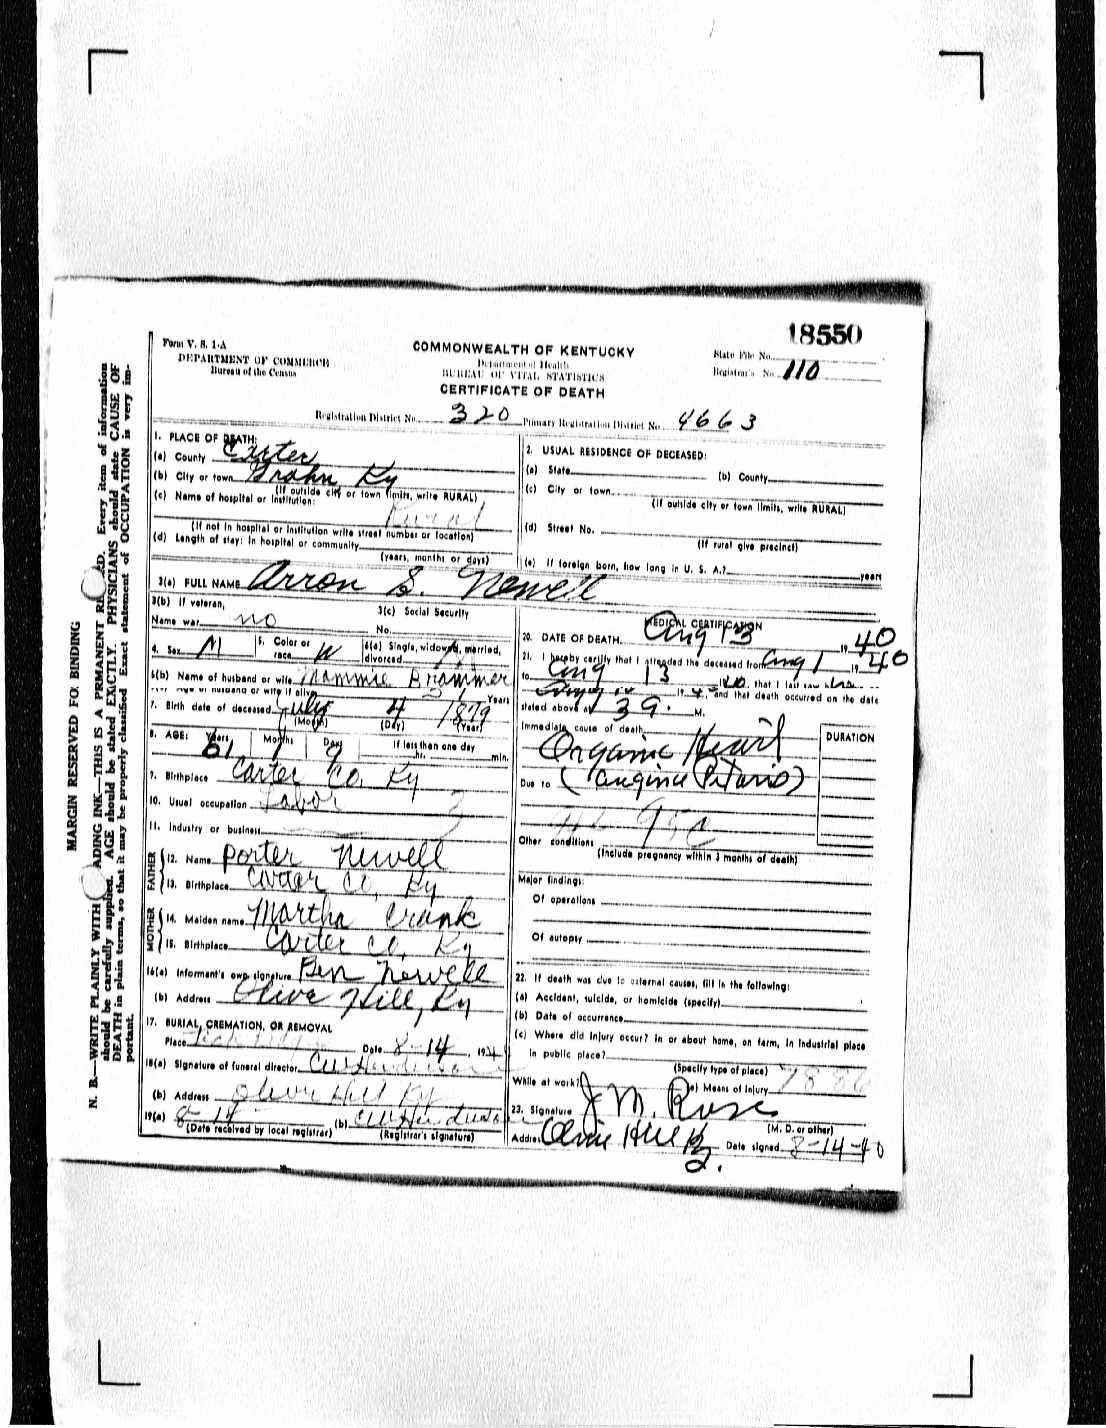 18550
Form V. S. 1-A
DEPARTMENT OF COMMERCE
Bureau of the Census
COMMONWEALTH OF KENTUCKY
Department of Health
BUREAU OF VITAL STATISTICS
CERTIFICATE OF DEATH
State File No.
Registrar's No. 110
Registration District No. 320 Primary Registration District No. 4663
MARGIN RESERVED FOR BINDING
N. B.—WRITE PLAINLY WITH ADING INK—THIS IS A PRMANENT RE RD. Every item of information
should be carefully supplied. AGE should be stated EXACTLY. PHYSICIANS should state CAUSE OF
DEATH in plain terms, so that it may be properly classified. Exact statement of OCCUPATION is very im-
portant.
1. PLACE OF DEATH:
(a) County Carter
(b) City or town Grahn Ky
(If outside city or town limits, write RURAL)
(c) Name of hospital or institution:
Rural
(If not in hospital or institution write street number or location)
(d) Length of stay: In hospital or community
(years, months or days)
2. USUAL RESIDENCE OF DECEASED:
(a) State (b) County
(c) City or town
(If outside city or town limits, write RURAL)
(d) Street No.
(If rural give precinct)
(e) If foreign born, how long in U. S. A.? years
3(a) FULL NAME Arron S. Newell
3(b) If veteran,
Name war no
3(c) Social Security
No.
4. Sex M 5. Color or race W 6(a) Single, widowed, married, divorced
6(b) Name of husband or wife Mammie Brammer
Age of husband or wife if alive 51 Years
7. Birth date of deceased July 4 1879
(Month) (Day) (Year)
8. AGE: Years Months Days If less than one day
61 1 9 hr. min.
9. Birthplace Carter Co. Ky
10. Usual occupation Labor
11. Industry or business
FATHER
12. Name Porter Newell
13. Birthplace Carter Co. Ky
MOTHER
14. Maiden name Martha Crank
15. Birthplace Carter Co. Ky
16(a) Informant's own signature Ben Newell
(b) Address Olive Hill, Ky
17. BURIAL, CREMATION, OR REMOVAL
Place Date 8-14, 19
18(a) Signature of funeral director CW Henderson
(b) Address Olive Hill Ky
19(a) 8-14 (b) CW Henderson
(Date received by local registrar) (Registrar's signature)
MEDICAL CERTIFICATION
20. DATE OF DEATH Aug 13 1940
21. I hereby certify that I attended the deceased from Aug 1 1940
to Aug 13 1940, that I last saw
19 and that death occurred on the date
stated above at M.
Immediate cause of death
Organic Heart
Due to (angina Pectoris)
DURATION
Other conditions
(Include pregnancy within 3 months of death)
Major findings:
Of operations
Of autopsy
22. If death was due to external causes, fill in the following:
(a) Accident, suicide, or homicide (specify)
(b) Date of occurrence
(c) Where did injury occur? In or about home, on farm, in industrial place
in public place?
(Specify type of place)
While at work? (e) Means of injury
23. Signature J M. Rose
(M. D. or other)
Address Olive Hill Ky Date signed 8-14-40